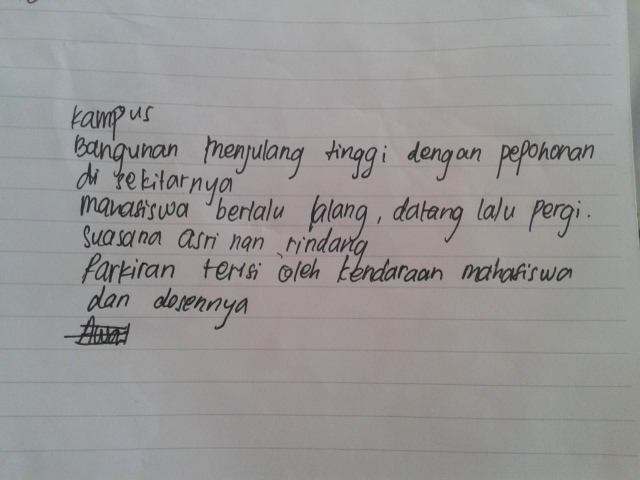 kampus
Bangunan menjulang tinggi dengan pepohonan
di sekitarnya
mahasiswa berlalu lalang, datang lalu pergi.
suasana asri nan rindang
Parkiran terisi oleh kendaraan mahasiswa
dan dosennya